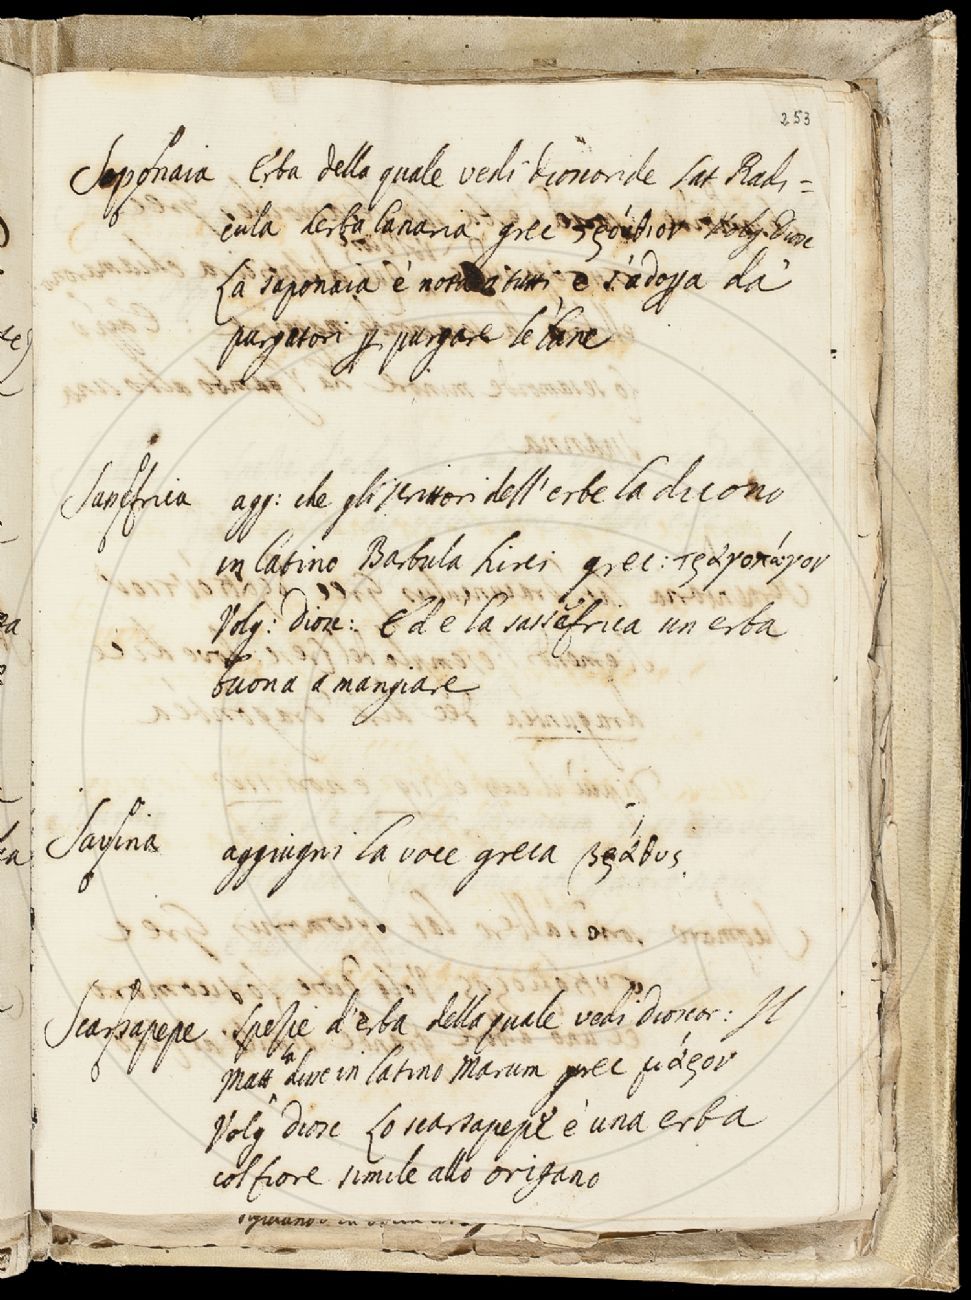 253
Saponaia Erba della quale vedi Dioscoride lat Radi=
cula derba lanaria grec στρούθιον Volg. Diosc
La saponaia è nota a tutti e s'adopa dà
purgatori p purgare le lane
Sassefrica agg: che gli scrittori dell'erbe la dicono
in latino Barbula hirci grec: τράγοπώγον
Volg: Diosc: Ed e la sassefrica un erba
buona a mangiare
Savina aggiugni la voce greca βράθυς
Scarsapepe Spezie d'erba della quale vedi Dioscor: Il
Matt la dice in latino Marum grec μάρον
Volg Diosc Lo scarsapepe è una erba
col fiore simile allo origano